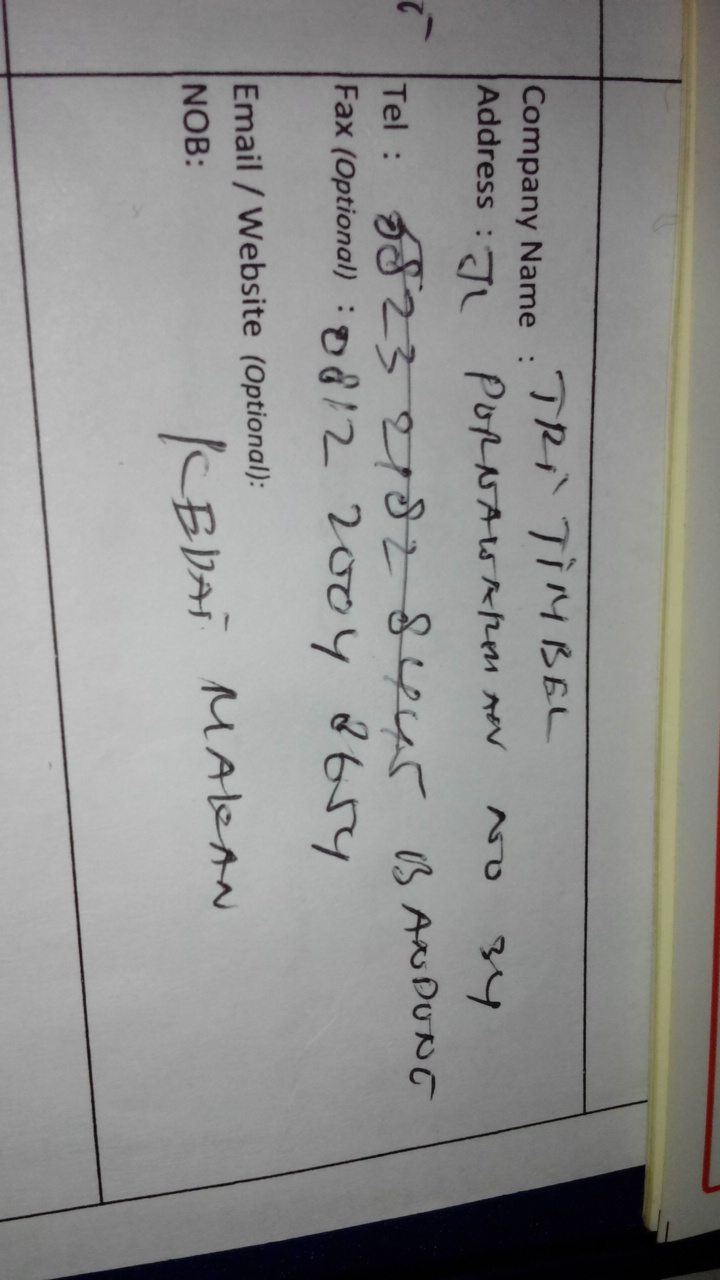 Company Name : TRI TIMBEL
Address : JL PURNAWARMAN NO 34
Tel : 0823 2182 8445 BANDUNG
Fax (Optional) : 0812 2004 8654
Email / Website (Optional):
NOB: KEDAI MAKAN